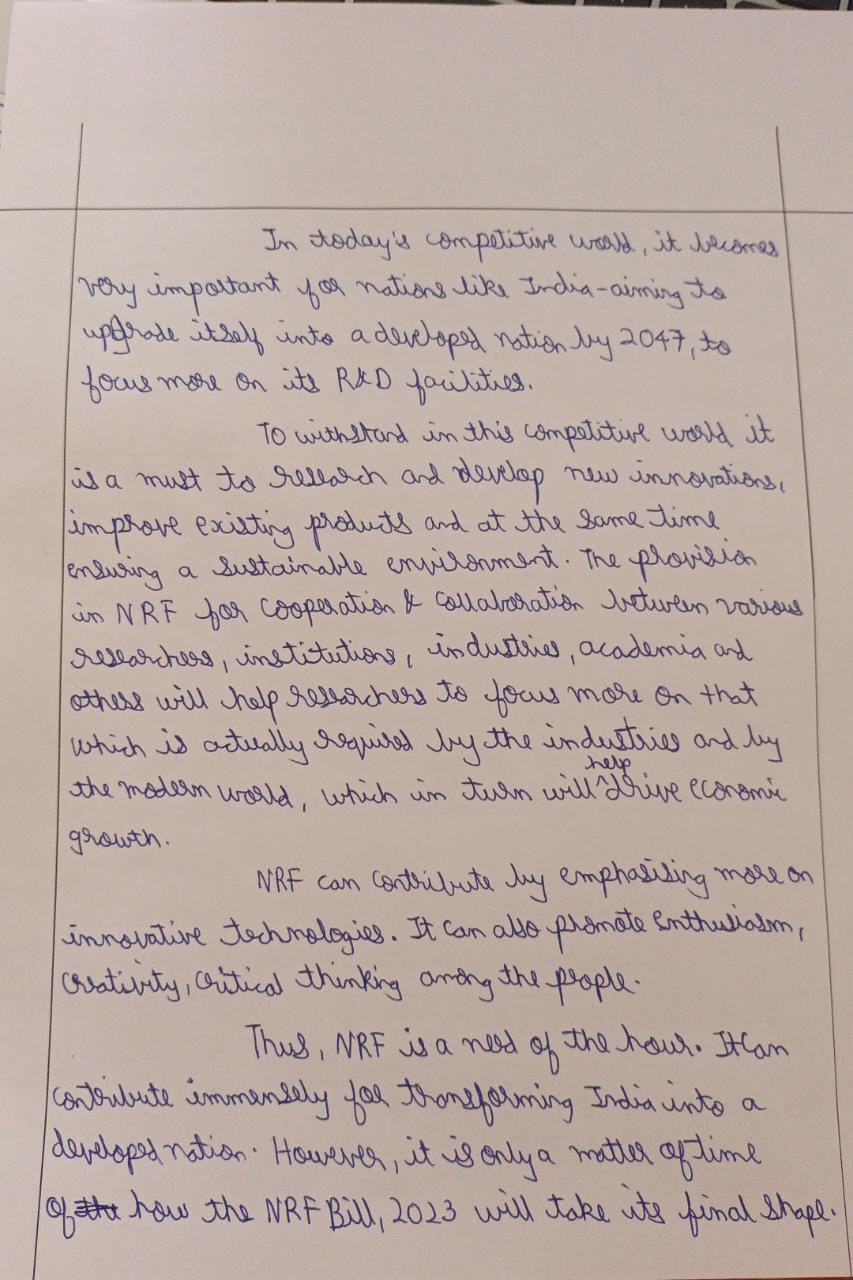 In today's competitive world, it becomes
very important for nations like India-aiming to
upgrade itself into a developed nation by 2047, to
focus more on its R&D facilities.
To withstand in this competitive world it
is a must to research and develop new innovations,
improve existing products and at the same time
ensuring a sustainable environment. The provision
in NRF for cooperation & collaboration between various
researchers, institutions, industries, academia and
others will help researchers to focus more on that
which is actually required by the industries and by
the modern world, which in turn will help drive economic
growth.
NRF can contribute by emphasising more on
innovative technologies. It can also promote enthusiasm,
creativity, critical thinking among the people.
Thus, NRF is a need of the hour. It can
contribute immensely for transforming India into a
developed nation. However, it is only a matter of time
of how the NRF Bill, 2023 will take its final shape.